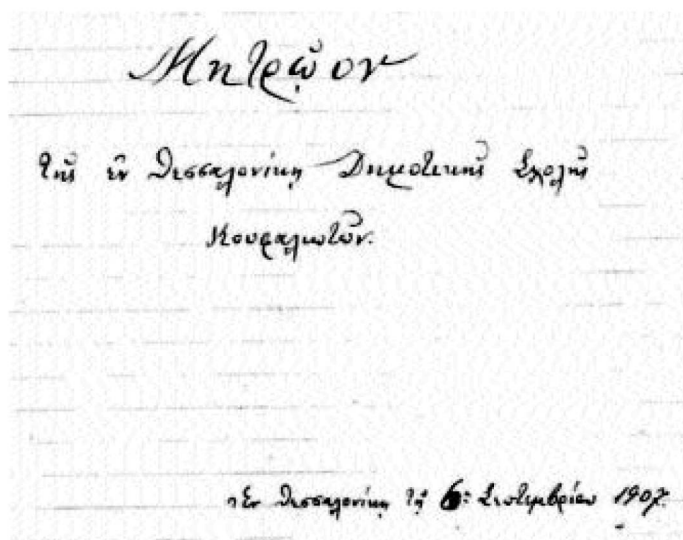 Μητρῷον
τῆς ἐν Θεσσαλονίκῃ Δημοτικῆς Σχολῆς
Κουραλιωτῶν.
Ἐν Θεσσαλονίκῃ τῇ 6ῃ Σεπτεμβρίου 1907.